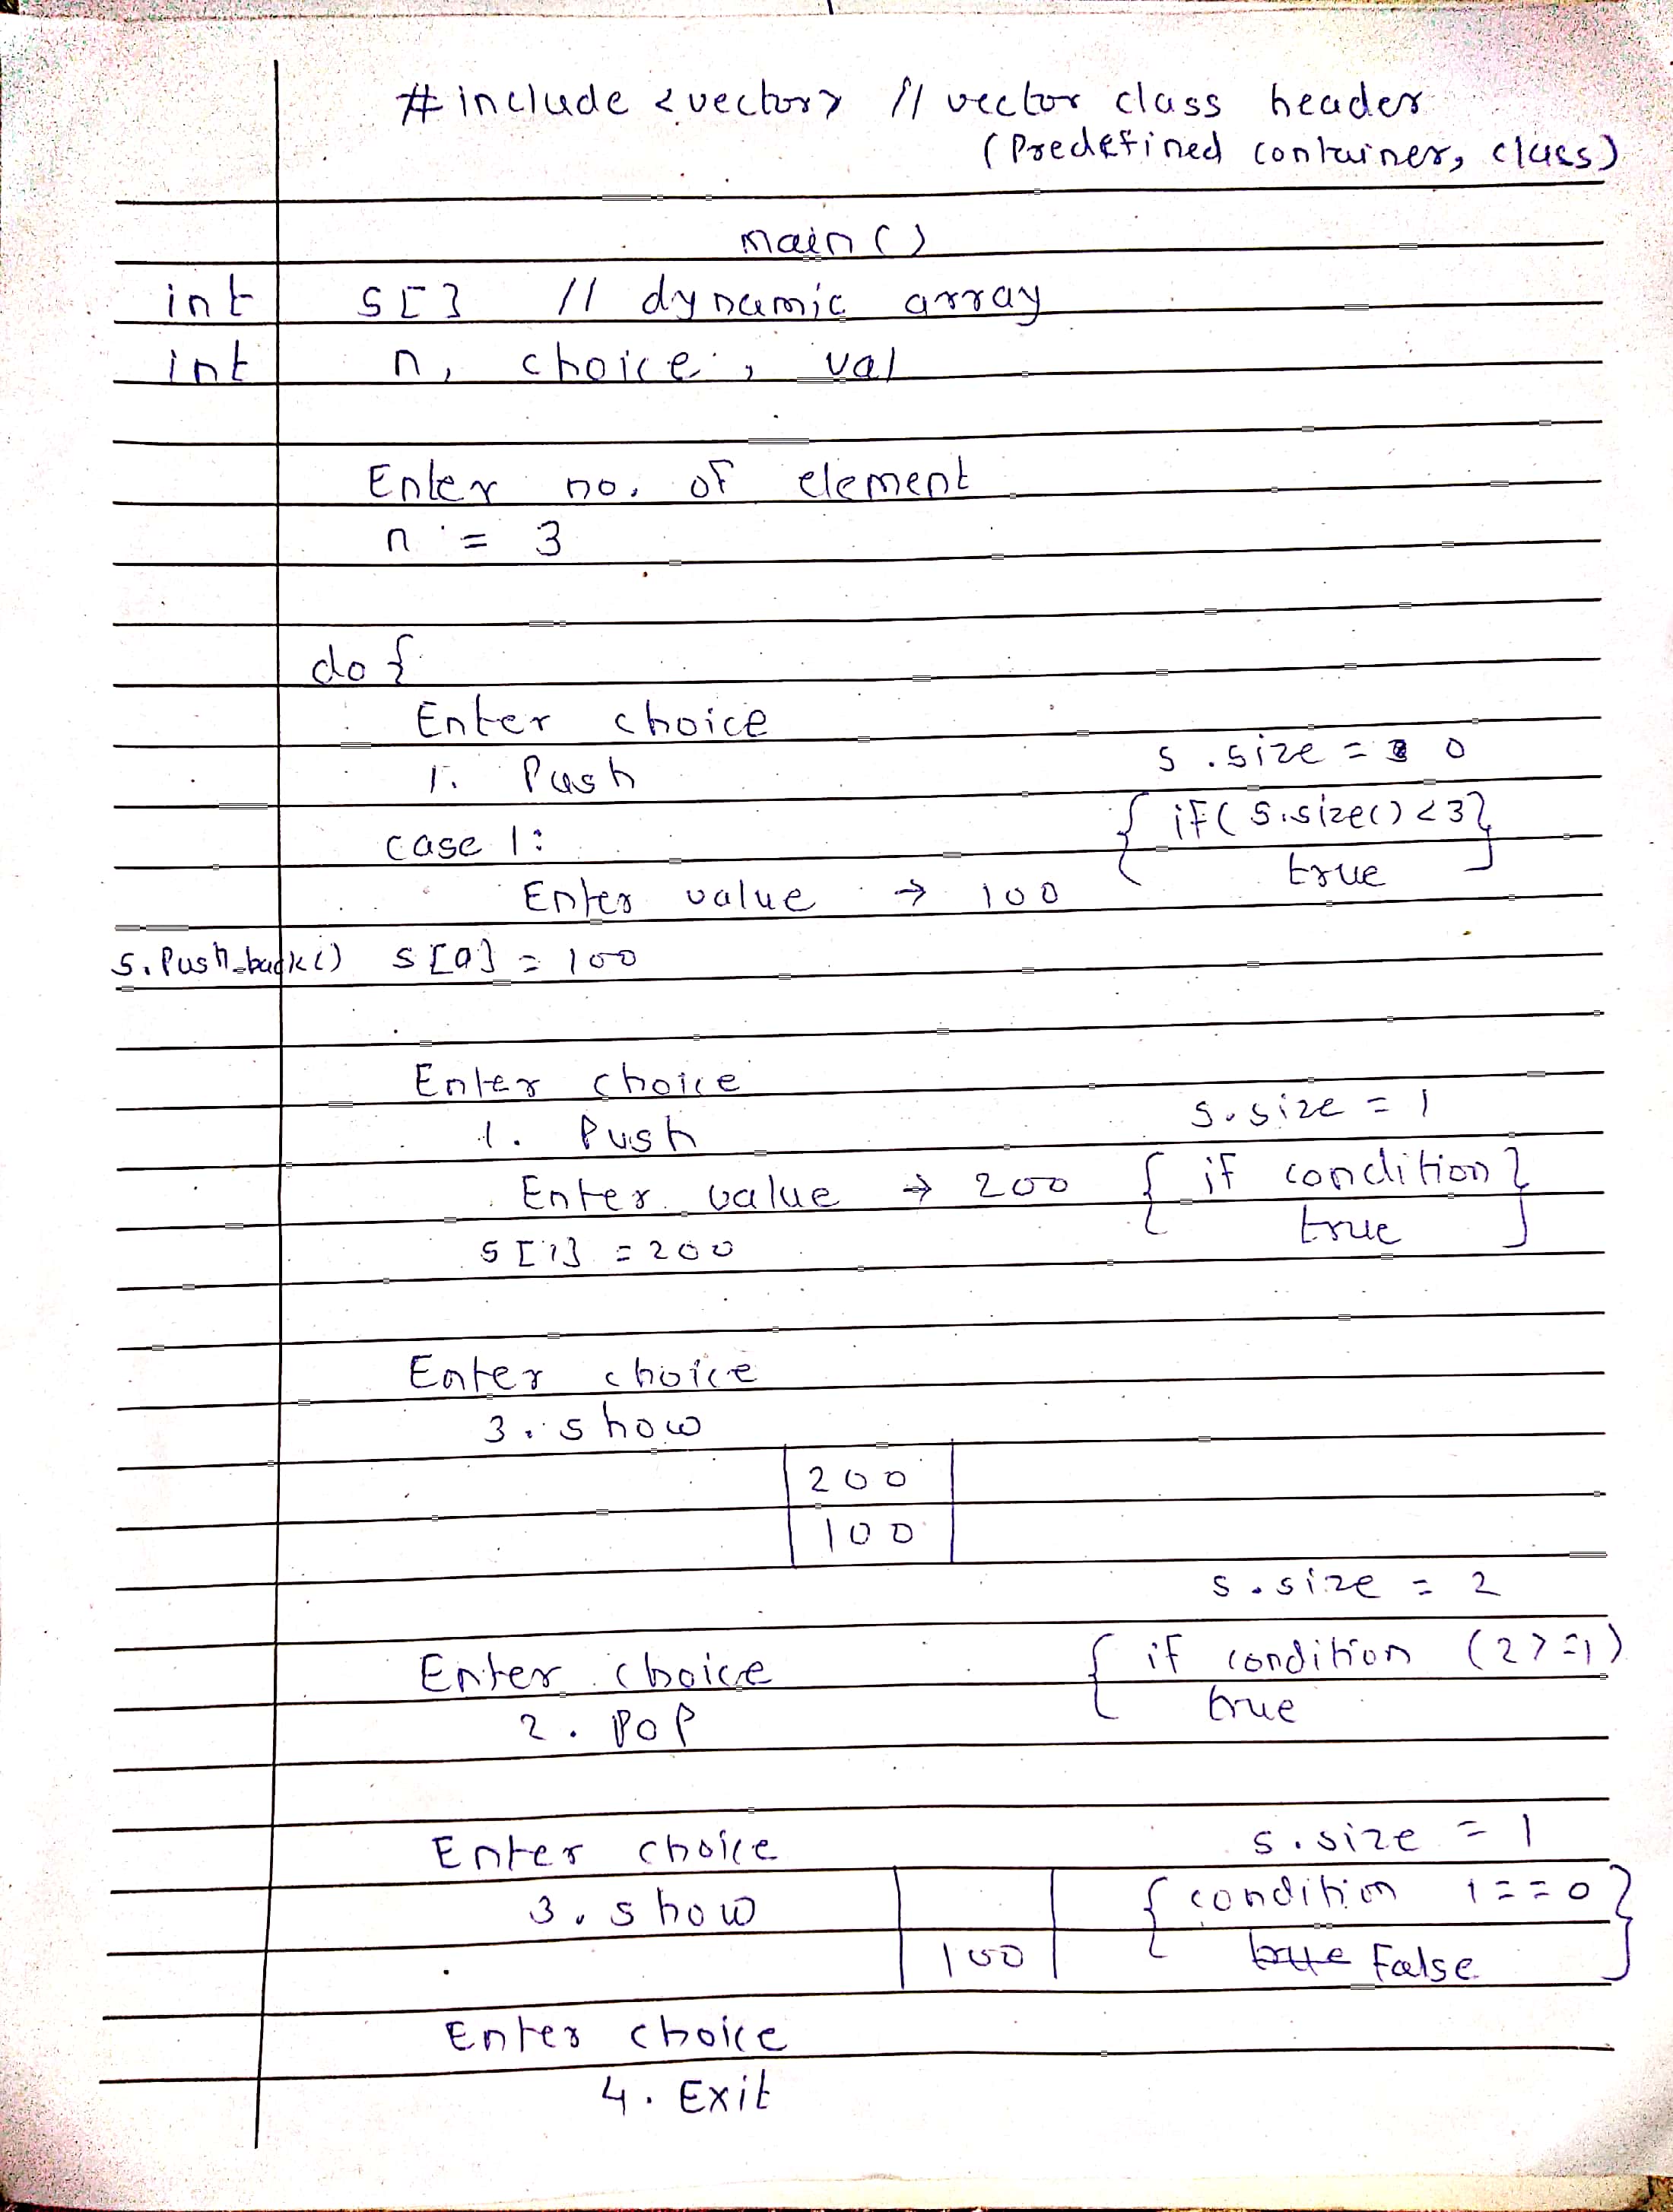 # include <vector> // vector class header
(Predefined container, class)
main()
int s[] // dynamic array
int n, choice, val
Enter no. of element
n = 3
do {
Enter choice
s.size = 0
1. Push
{ if( s.size() < 3}
case 1:
true
Enter value → 100
s.Push_back() s[0] = 100
Enter choice
s.size = 1
1. Push
Enter value → 200 { if condition }
true
s[1] = 200
Enter choice
3. show
200
100
s.size = 2
Enter choice { if condition (2>=1)
true
2. POP
Enter choice s.size = 1
3. show { condition 1==0 }
100 true False
Enter choice
4. Exit